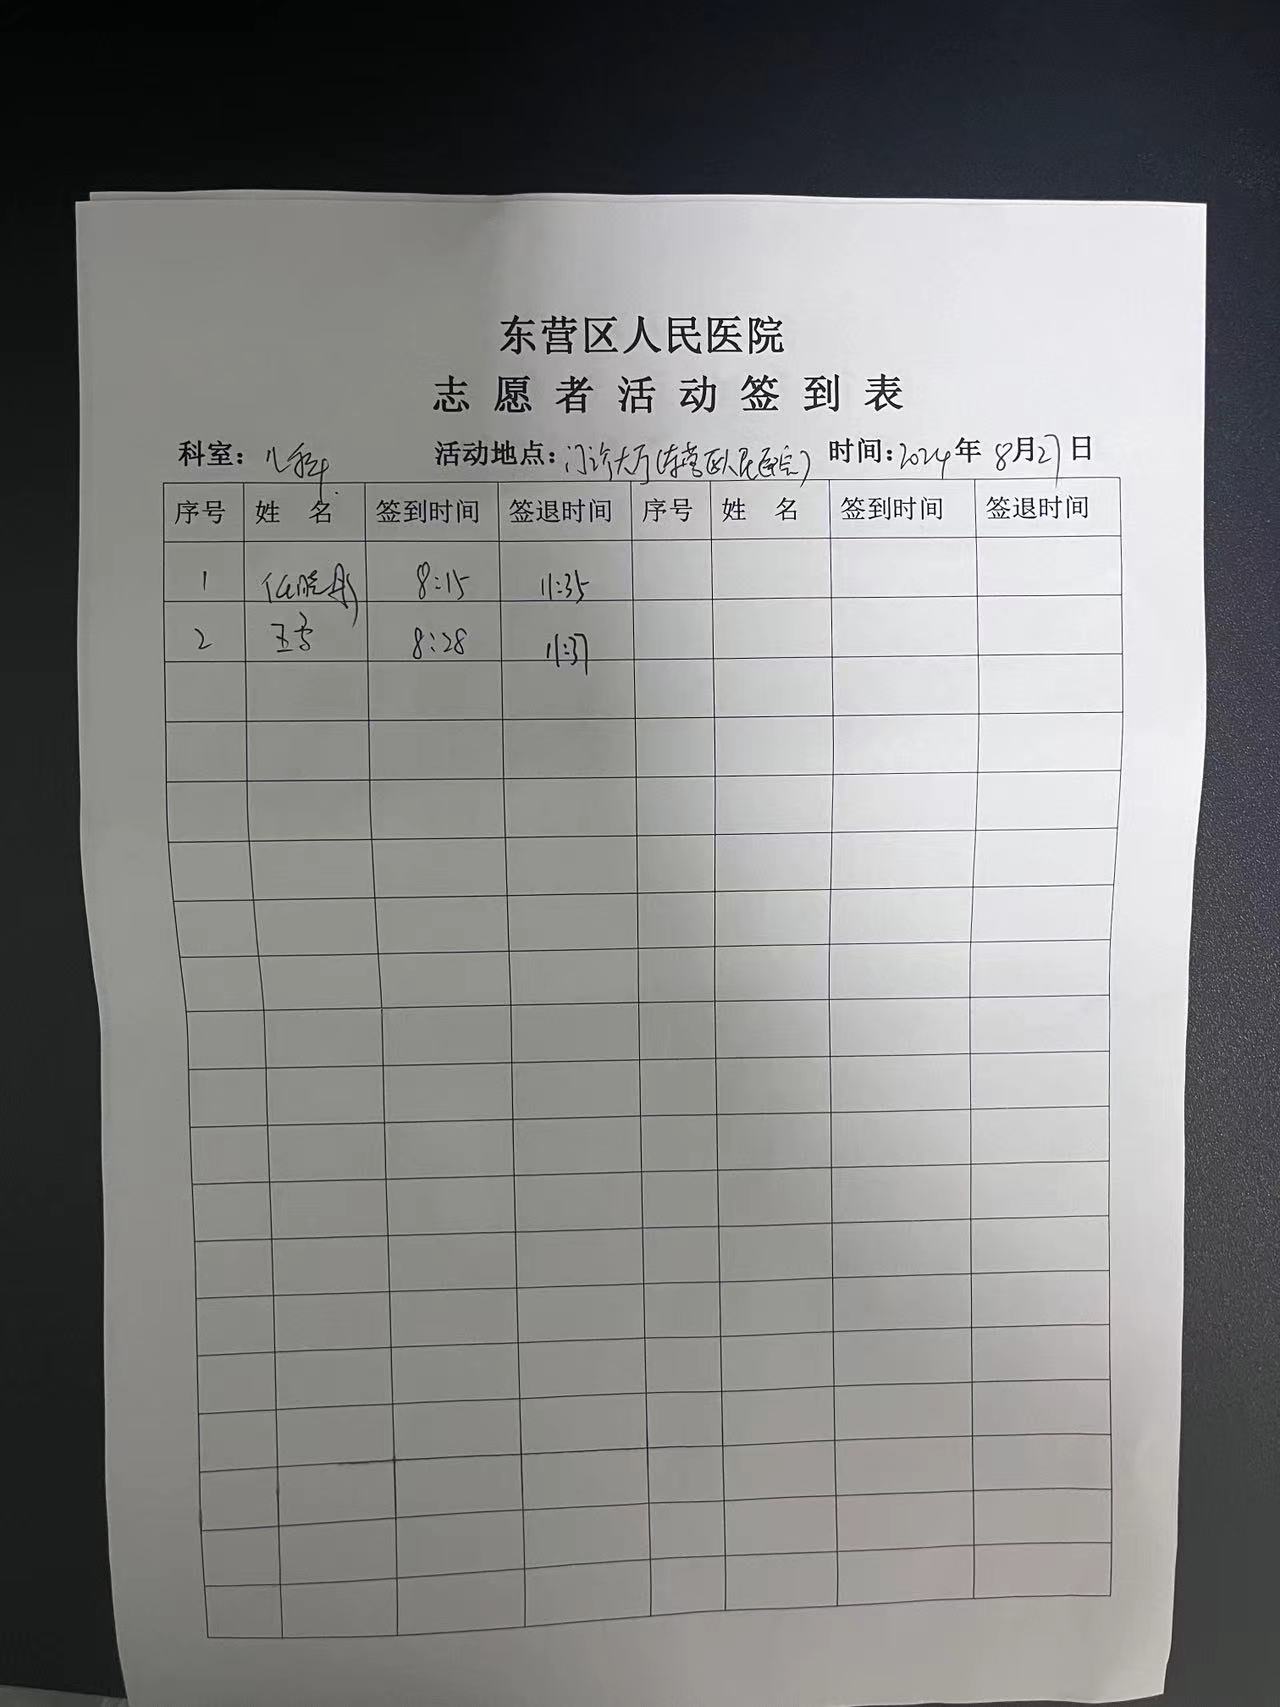 东营区人民医院
志愿者活动签到表
科室：儿科 活动地点：门诊大厅（东营区人民医院） 时间：2024年8月27日
序号 姓名 签到时间 签退时间 序号 姓名 签到时间 签退时间
1 任晓彤 8:15 11:35
2 王雪 8:28 11:37